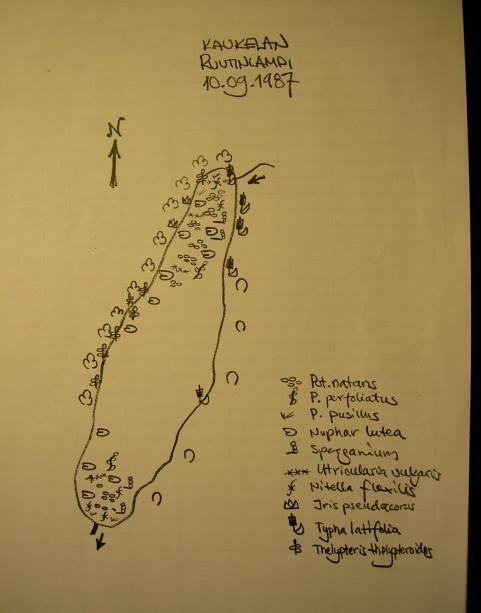 KAUKELAN
RUUTINLAMPI
10.09.1987
N
Pot. natans
P. perfoliatus
P. pusillus
Nuphar lutea
Sparganium
Utricularia vulgaris
Nitella flexilis
Iris pseudacorus
Typha latifolia
Thelypteris thelypteroides